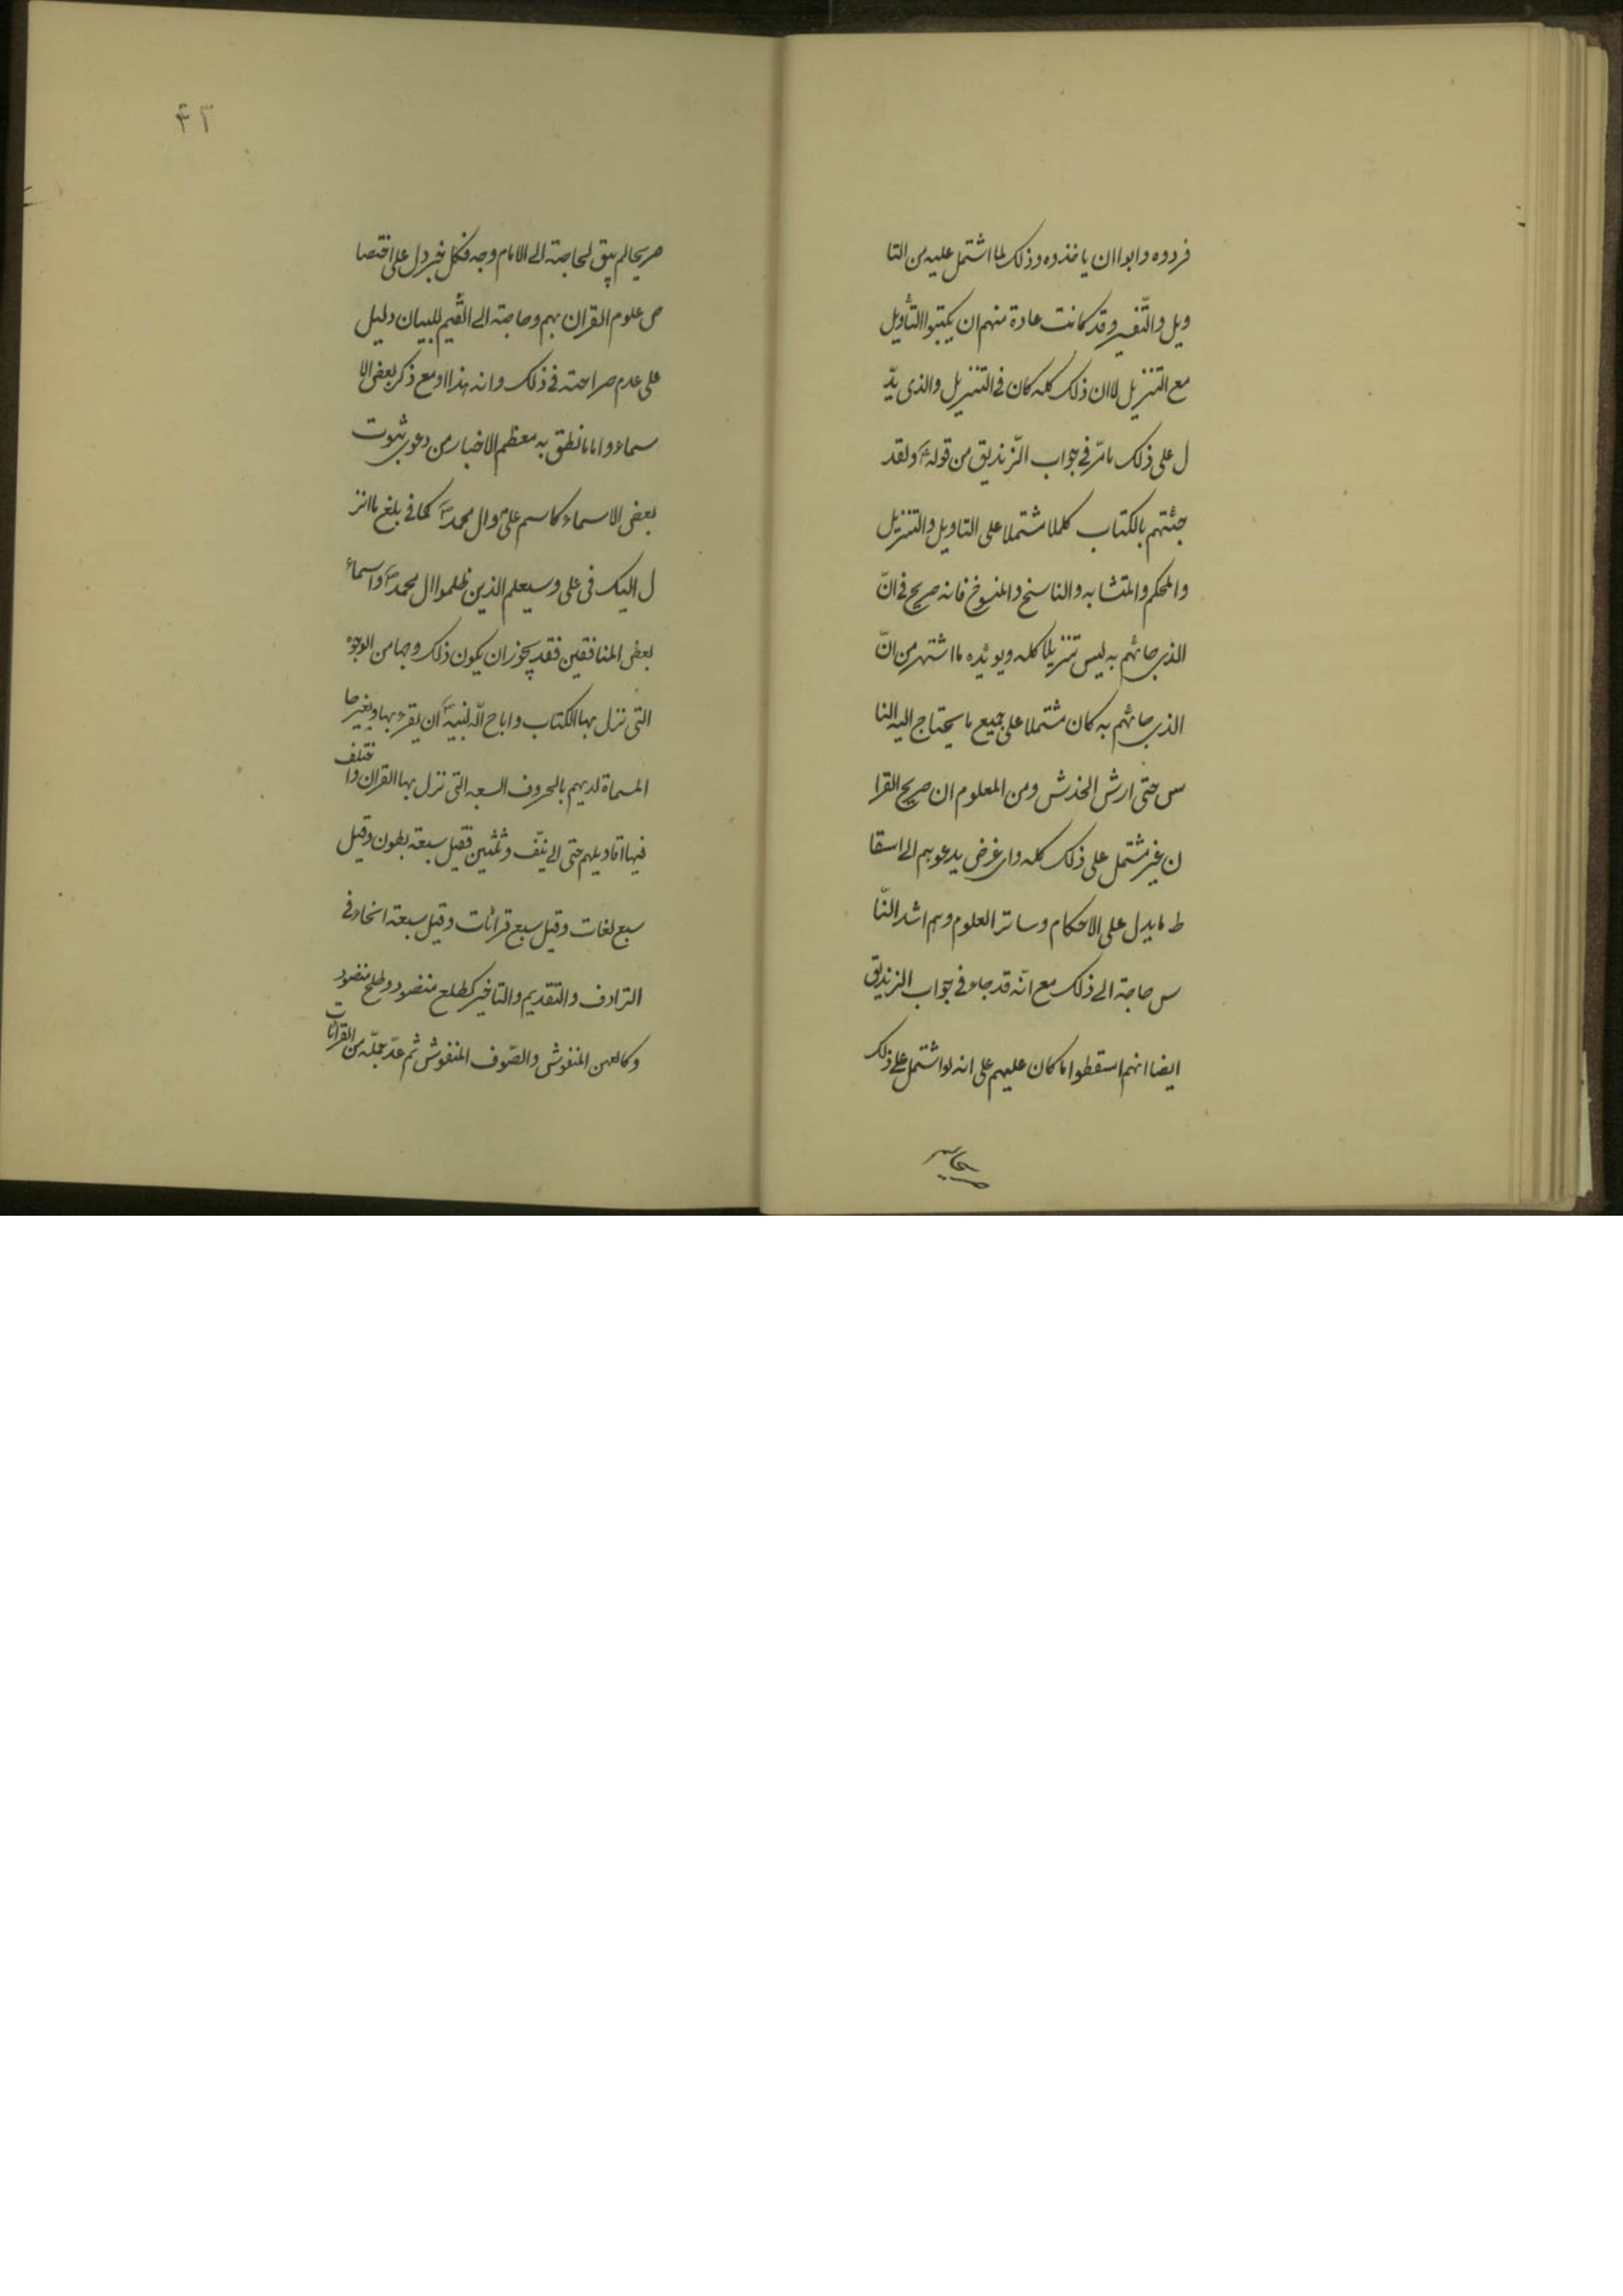 فردوه وابوا ان ياخذوه وذلك لما اشتمل عليه من التا
ويل والتفسير وقد كانت عادة منهم ان يكتبوا التأويل
مع التنزيل لا ان ذلك كله كان فى التنزيل والذى يدّ
ل على ذلك ما مرّ فى جواب الزنديق من قوله ع ولقد
جئتهم بالكتاب كملا مشتملا على التاويل والتنزيل
والمحكم والمتشابه والناسخ والمنسوخ فانه صريح فى انّ
الذى جائهم به ليس تنزيلا كله ويويّده ما اشتهر من انّ
الذى جائهم به كان مشتملا على جميع ما يحتاج اليه النا
س حتى ارش الخدش ومن المعلوم ان صريح القرا
ن غير مشتمل على ذلك كله واى غرض يدعوهم الى اسقا
ط ما يدل على الاحكام وسائر العلوم وهم اشد النّا
س حاجة الى ذلك مع انّه قد جاء فى جواب الزنديق
ايضا انهم اسقطوا ما كان عليهم على انه لو اشتمل على ذلك
صريحا
٤٢
صريحا لم يبق لحاجته الى الامام وجه فكل خبر دل على اختصا
ص علوم القران بهم وحاجته الى القيّم للبيان دليل
على عدم صراحته فى ذلك وانه هذا او مع ذكر بعض الا
سماء واما ما نطق به معظم الاخبار من دعوى ثبوت
بعض الاسماء كاسم على وال محمد ص كما فى بلغ ما انز
ل اليك فى على وسيعلم الذين ظلموا ال محمد ص واسماء
بعض المنافقين فقد يجوز ان يكون ذلك وجها من الوجوه
التى نزل بها الكتاب واباح الله لنبيه ص ان يقرء بها وبغيرها
المسماة لديهم بالحروف السبعه التى نزل بها القران واختلف
فيها اقاويلهم حتى الى نيّف وثلثين فقيل سبعة بطون وقيل
سبع لغات وقيل سبع قرائات وقيل سبعة انحاء فى
الترادف والتقديم والتاخير كطلع منضود وطلح منضود
وكالعهن المنفوش والصّوف المنفوش ثم عدّ جملة من القرائات